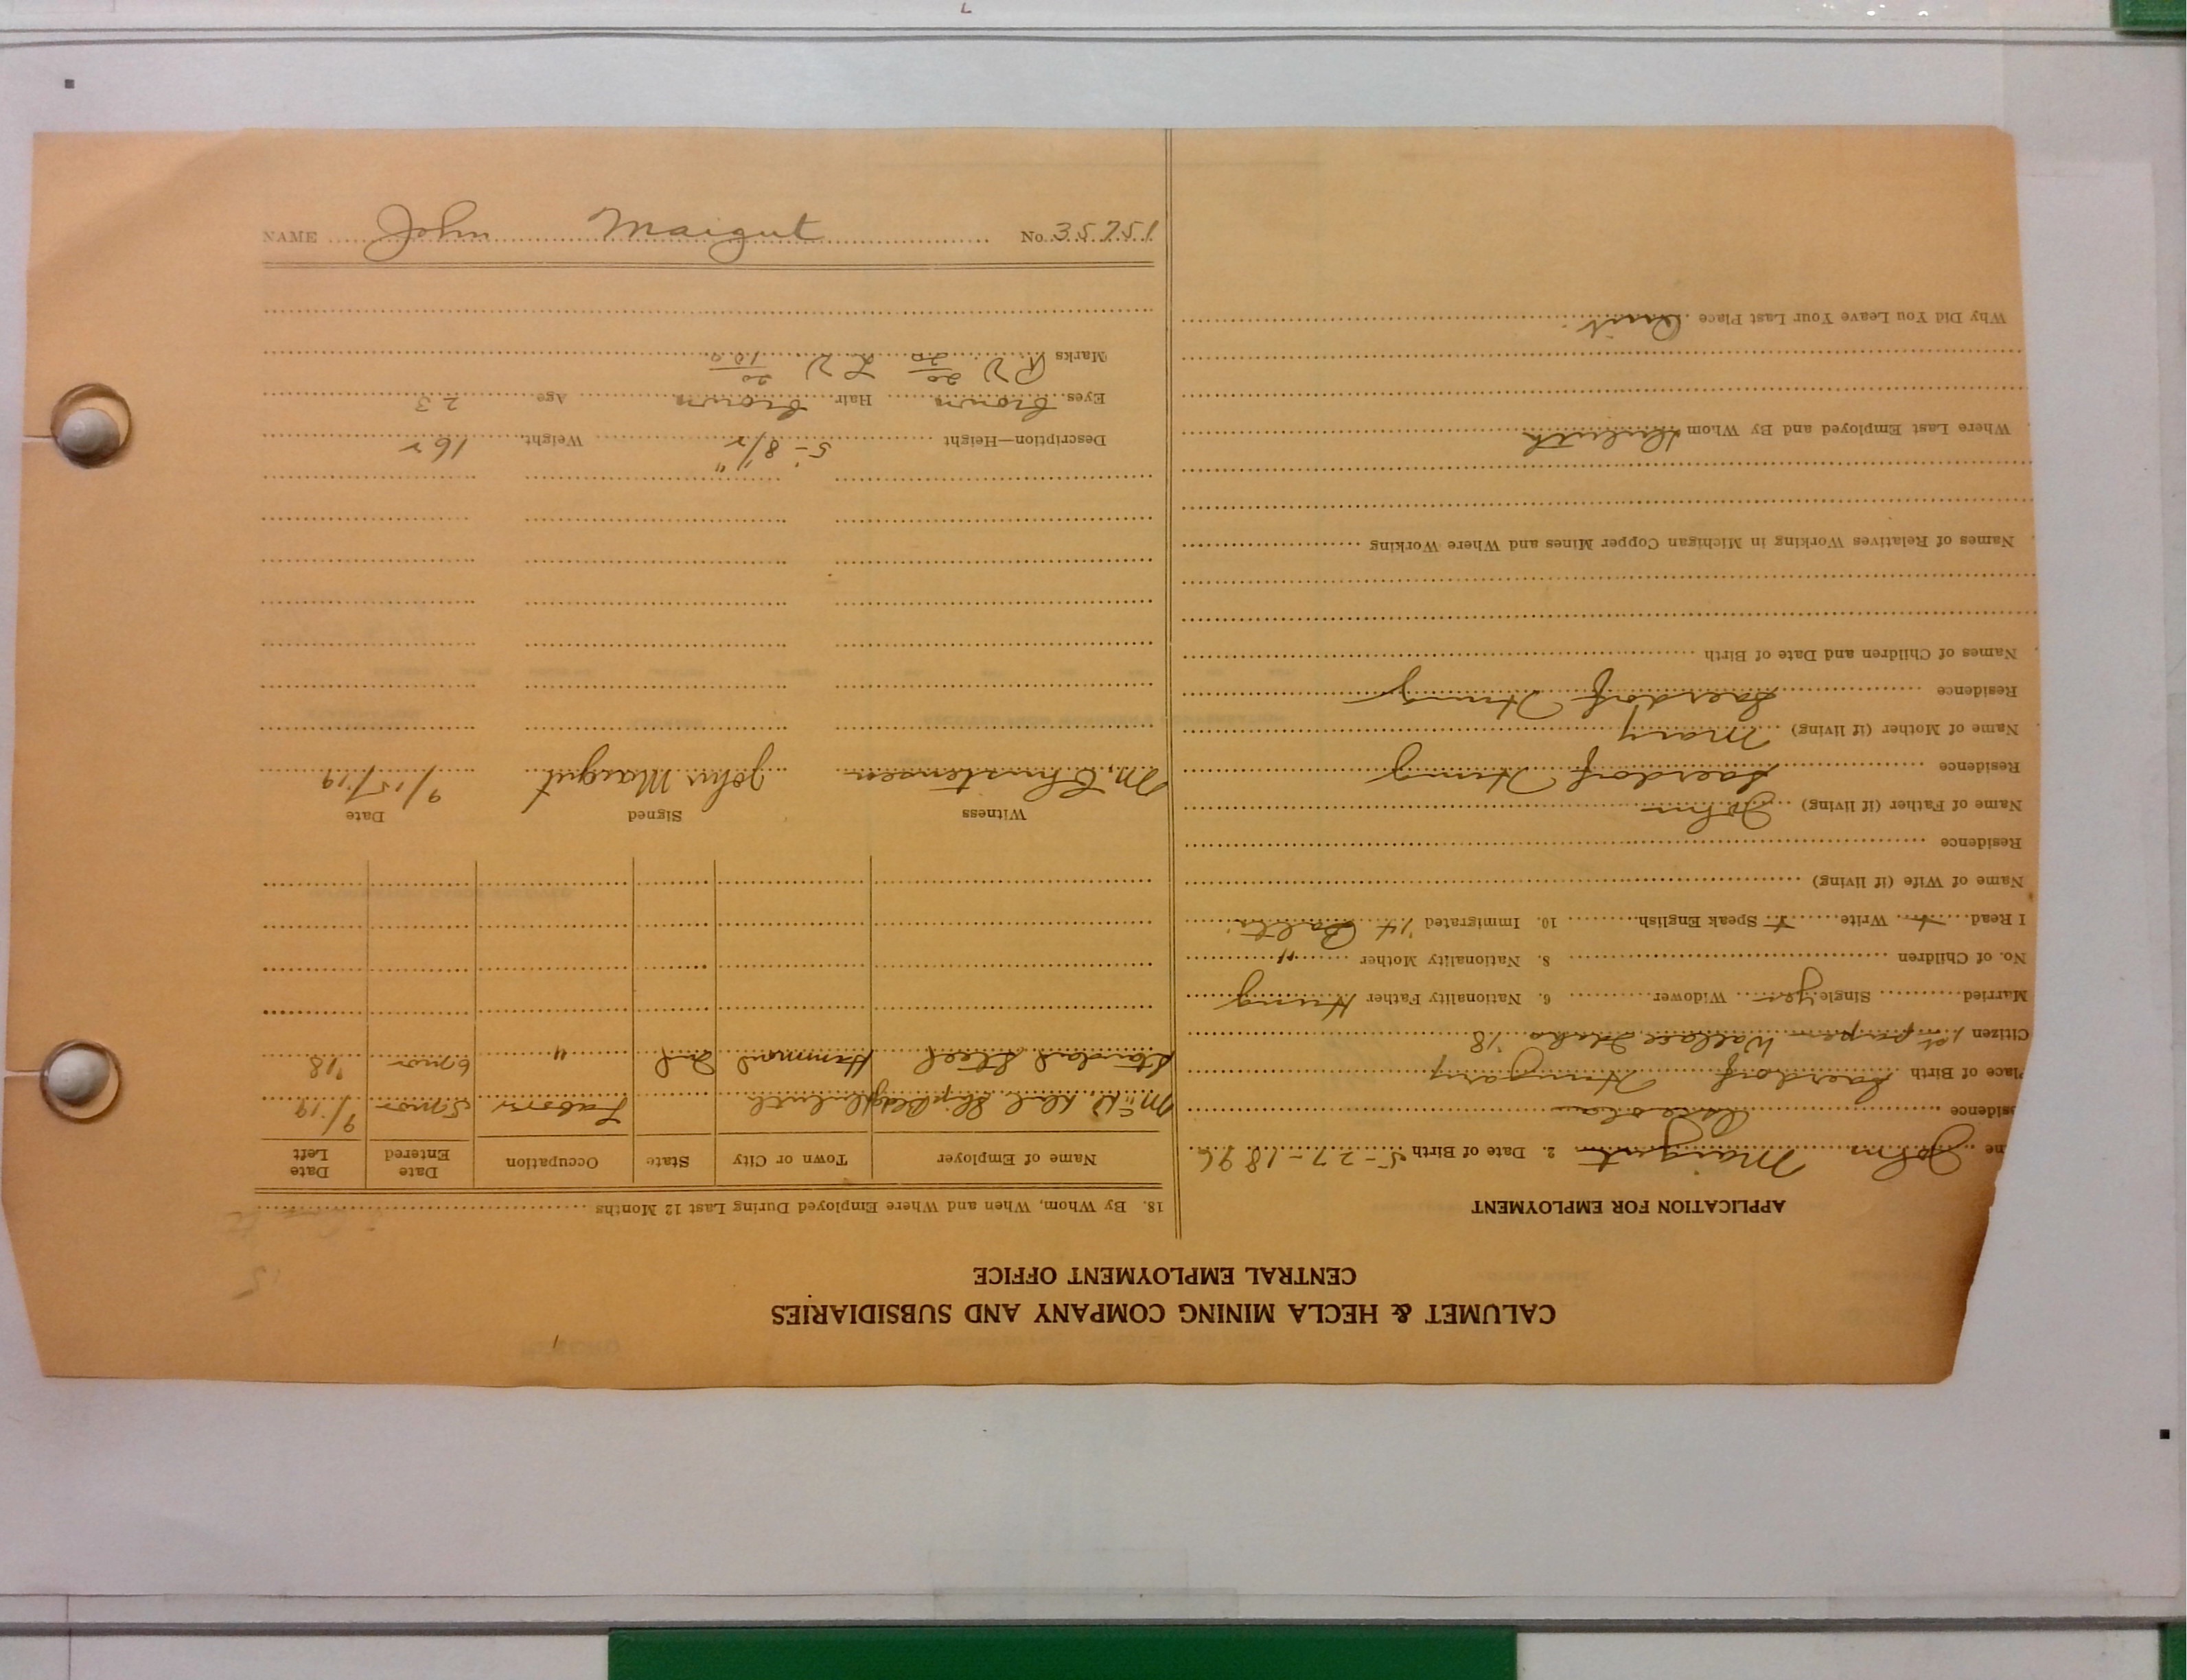 CALUMET & HECLA MINING COMPANY AND SUBSIDIARIES
CENTRAL EMPLOYMENT OFFICE
APPLICATION FOR EMPLOYMENT
me John Maigut 2. Date of Birth 5-27-1896
sidence
Place of Birth Hungary
Citizen 1st papers Wallace Idaho '18
Married Single yes Widower 6. Nationality Father Hung
No. of Children 8. Nationality Mother "
I Read + Write + Speak English 10. Immigrated '14 Balto
Name of Wife (if living)
Residence
Name of Father (if living) John
Residence Saerdorf Hung
Name of Mother (if living) Mary
Residence Saerdorf Hung
Names of Children and Date of Birth
Names of Relatives Working in Michigan Copper Mines and Where Working
Where Last Employed and By Whom Duluth
Why Did You Leave Your Last Place Quit
18. By Whom, When and Where Employed During Last 12 Months
Name of Employer Town or City State Occupation Date Entered Date Left
Ship Duluth Labor 5 mos 9/19
Standard Steel Hammond Ind " 6 mos '18
Witness Signed Date
M. Christensen John Maigut 9/15/19
Description—Height 5'-8 1/2" Weight 162
Eyes brown Hair brown Age 23
Marks RV 20/20 LV 20/100
NAME John Maigut No. 35751